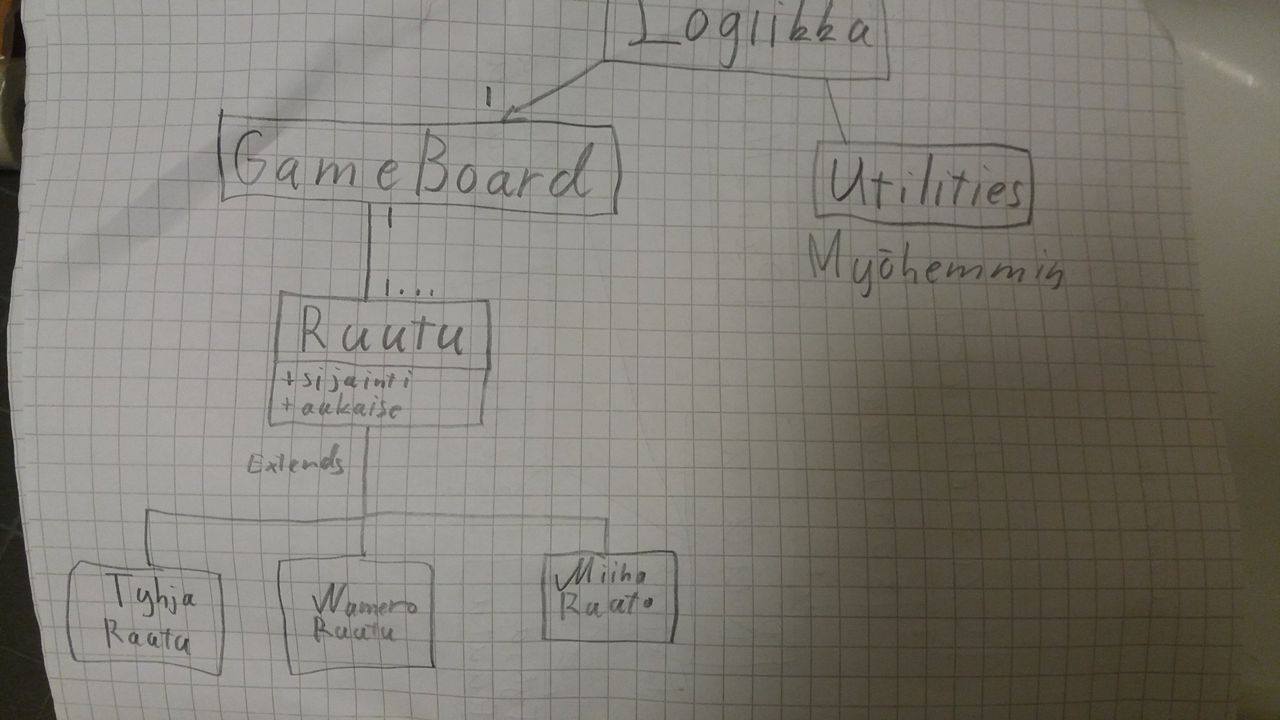 Logiikka
1
GameBoard
Utilities
1
Myöhemmin
1...
Ruutu
+ sijainti
+ aukaise
Extends
Tyhja
Ruutu
Numero
Ruutu
Miina
Ruutu